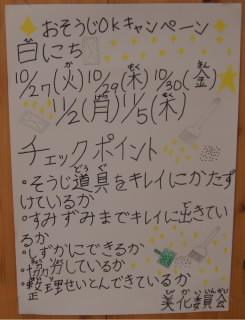 おそうじOkキャンペーン
日にち
10/27(火)10/29(木)10/30(金)
11/2(月)11/5(木)
チェックポイント
・そうじ道具をキレイにかたず
けているか
・すみずみまでキレイに出きてい
るか
・しずかにできるか
・協力しているか
・整理せいとんできているか
美化委員会